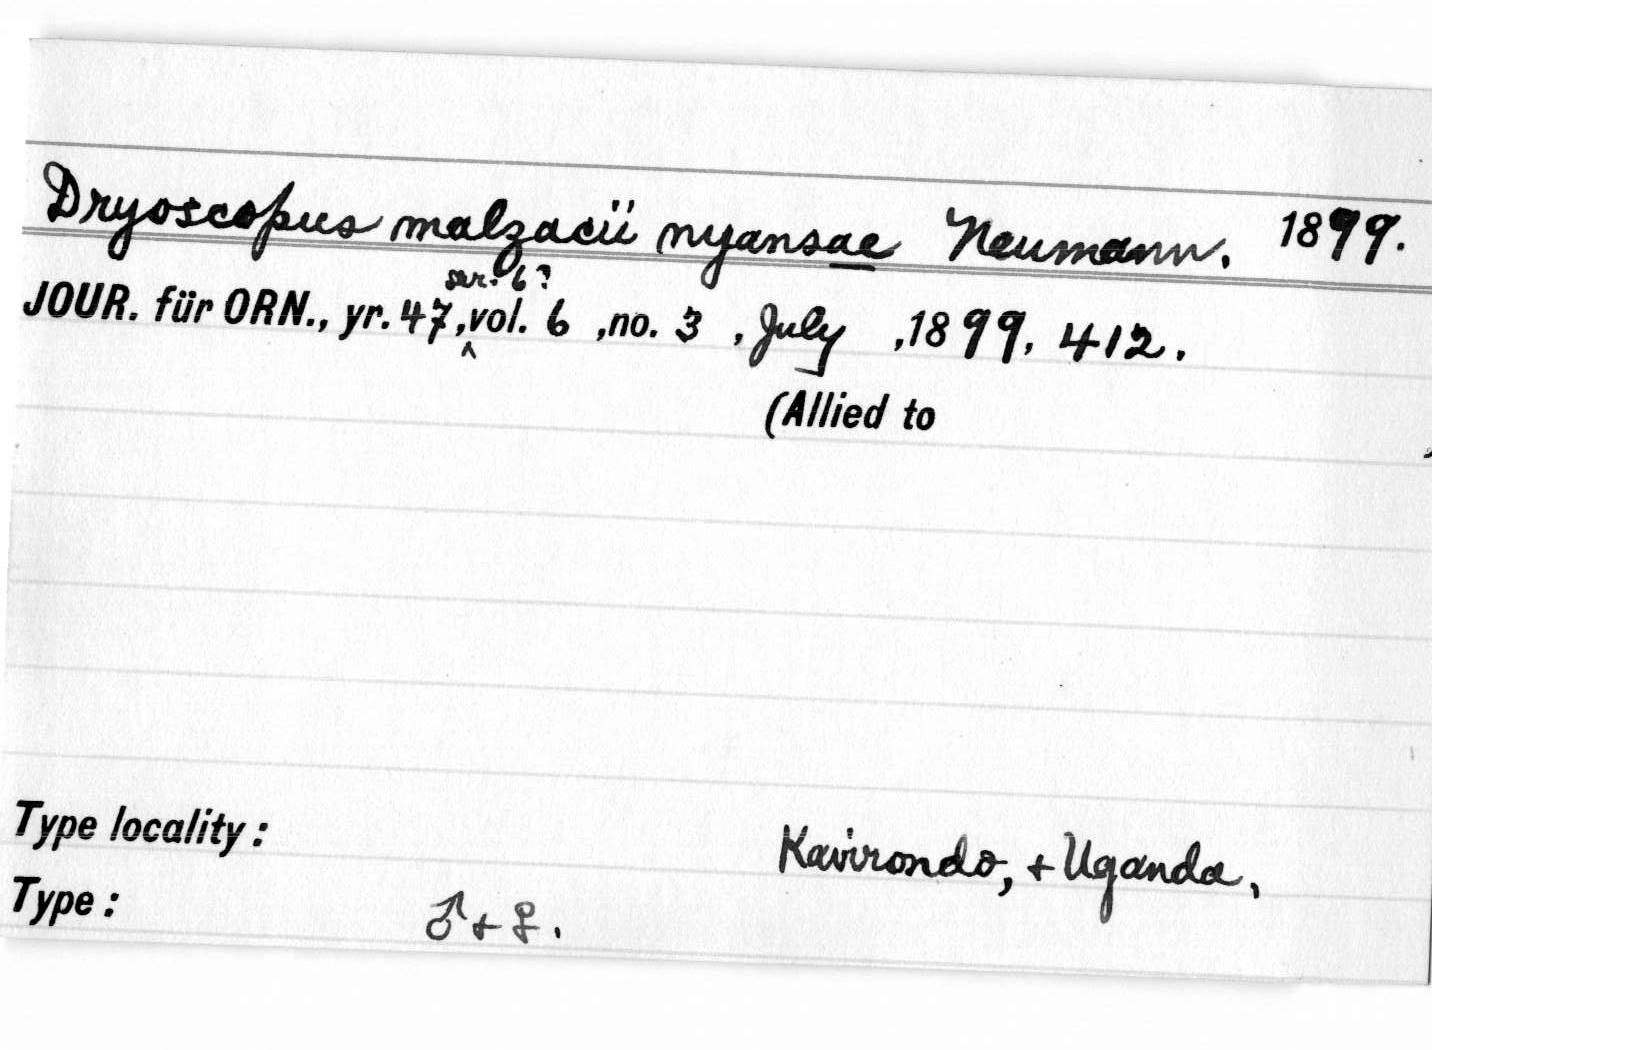 Dryoscopus malzacii nyansae Neumann. 1899.
ser. 6?
JOUR. für ORN., yr. 47, ‸ vol. 6 , no. 3 , July , 1899, 412.
(Allied to
Type locality: Kavirondo, + Uganda,
Type: ♂ + ♀.